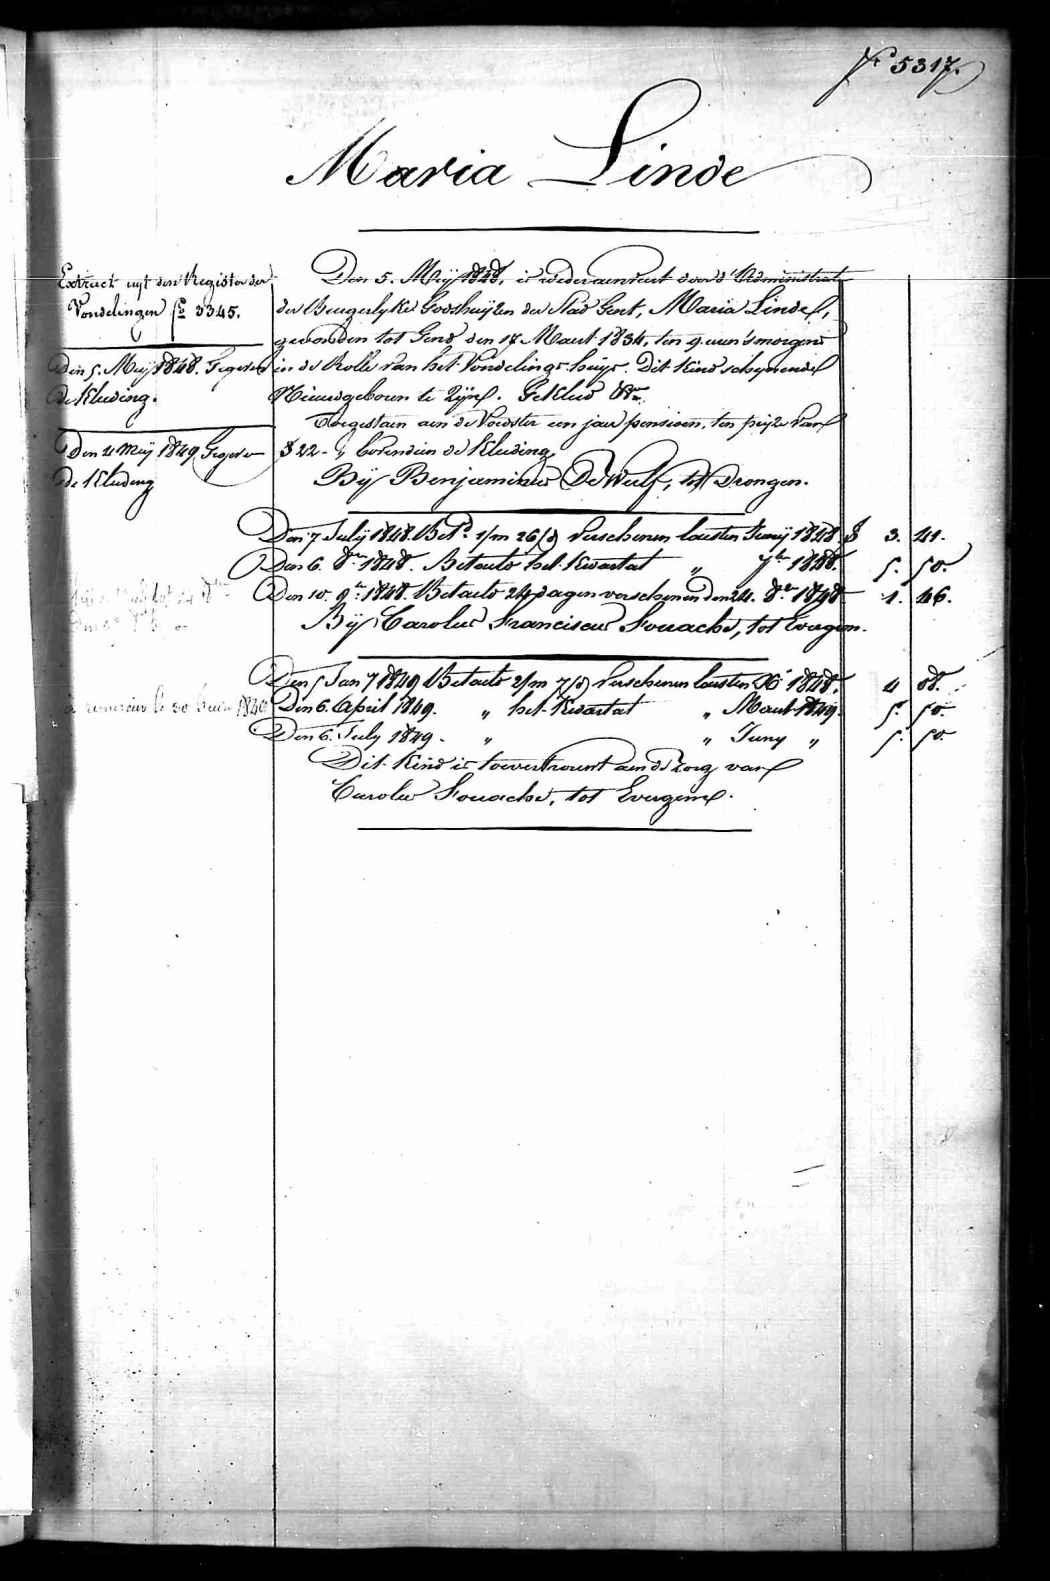 fo 5317.
Maria Linde
Extract uyt den Register der
Vondelingen fo 3345.
Den 5. Meÿ 1848. Gegeven
de Kleeding.
Den 4 Meÿ 1849 Gegeven
de Kleeding
Den 5. Meÿ 1848, is wederaenveert door d'Administratie
der Burgerlyke Godshuÿzen der Stad Gent, Maria Linde,
gevonden tot Gend den 17 Maert 1834, ten 9 uren 's morgens
in de Rolle van het Vondelings-huys. Dit Kind schynende
Nieuwgeboren te Zÿn. Gekleed &a.
Toegestaen aen de Voedster een jaer pensioen, ten prÿze van
22 - " bovendien de Kleeding,
Bÿ Benjaminus De Wulf, tot Drongen.
Den 7 Julÿ 1848. Betd. 1/m 26/d Verschenen lausten Junÿ 1848 3. 41.
Den 6. 8er 1848. Betaeld het Kwartael " 7b 1848. 5. 50.
Den 10. 9er 1848. Betaeld 24 dagen verschenen den 24. 8er 1848 1. 46.
Bÿ Carolus Franciscus Fouache, tot Evergem.
Den 5 Jan 1849 Betaeld 2/m 7/d Verschenen lausten Xb 1848. 4 08.
à remeur le 30 Juin 1849
Den 6. April 1849. " het Kwartael " Maert 1849. 5. 50.
Den 6. July 1849. " " Juny " 5. 50.
Dit Kind is toevertrouwt aen de zorg van
Carolus Fouache, tot Evergem.